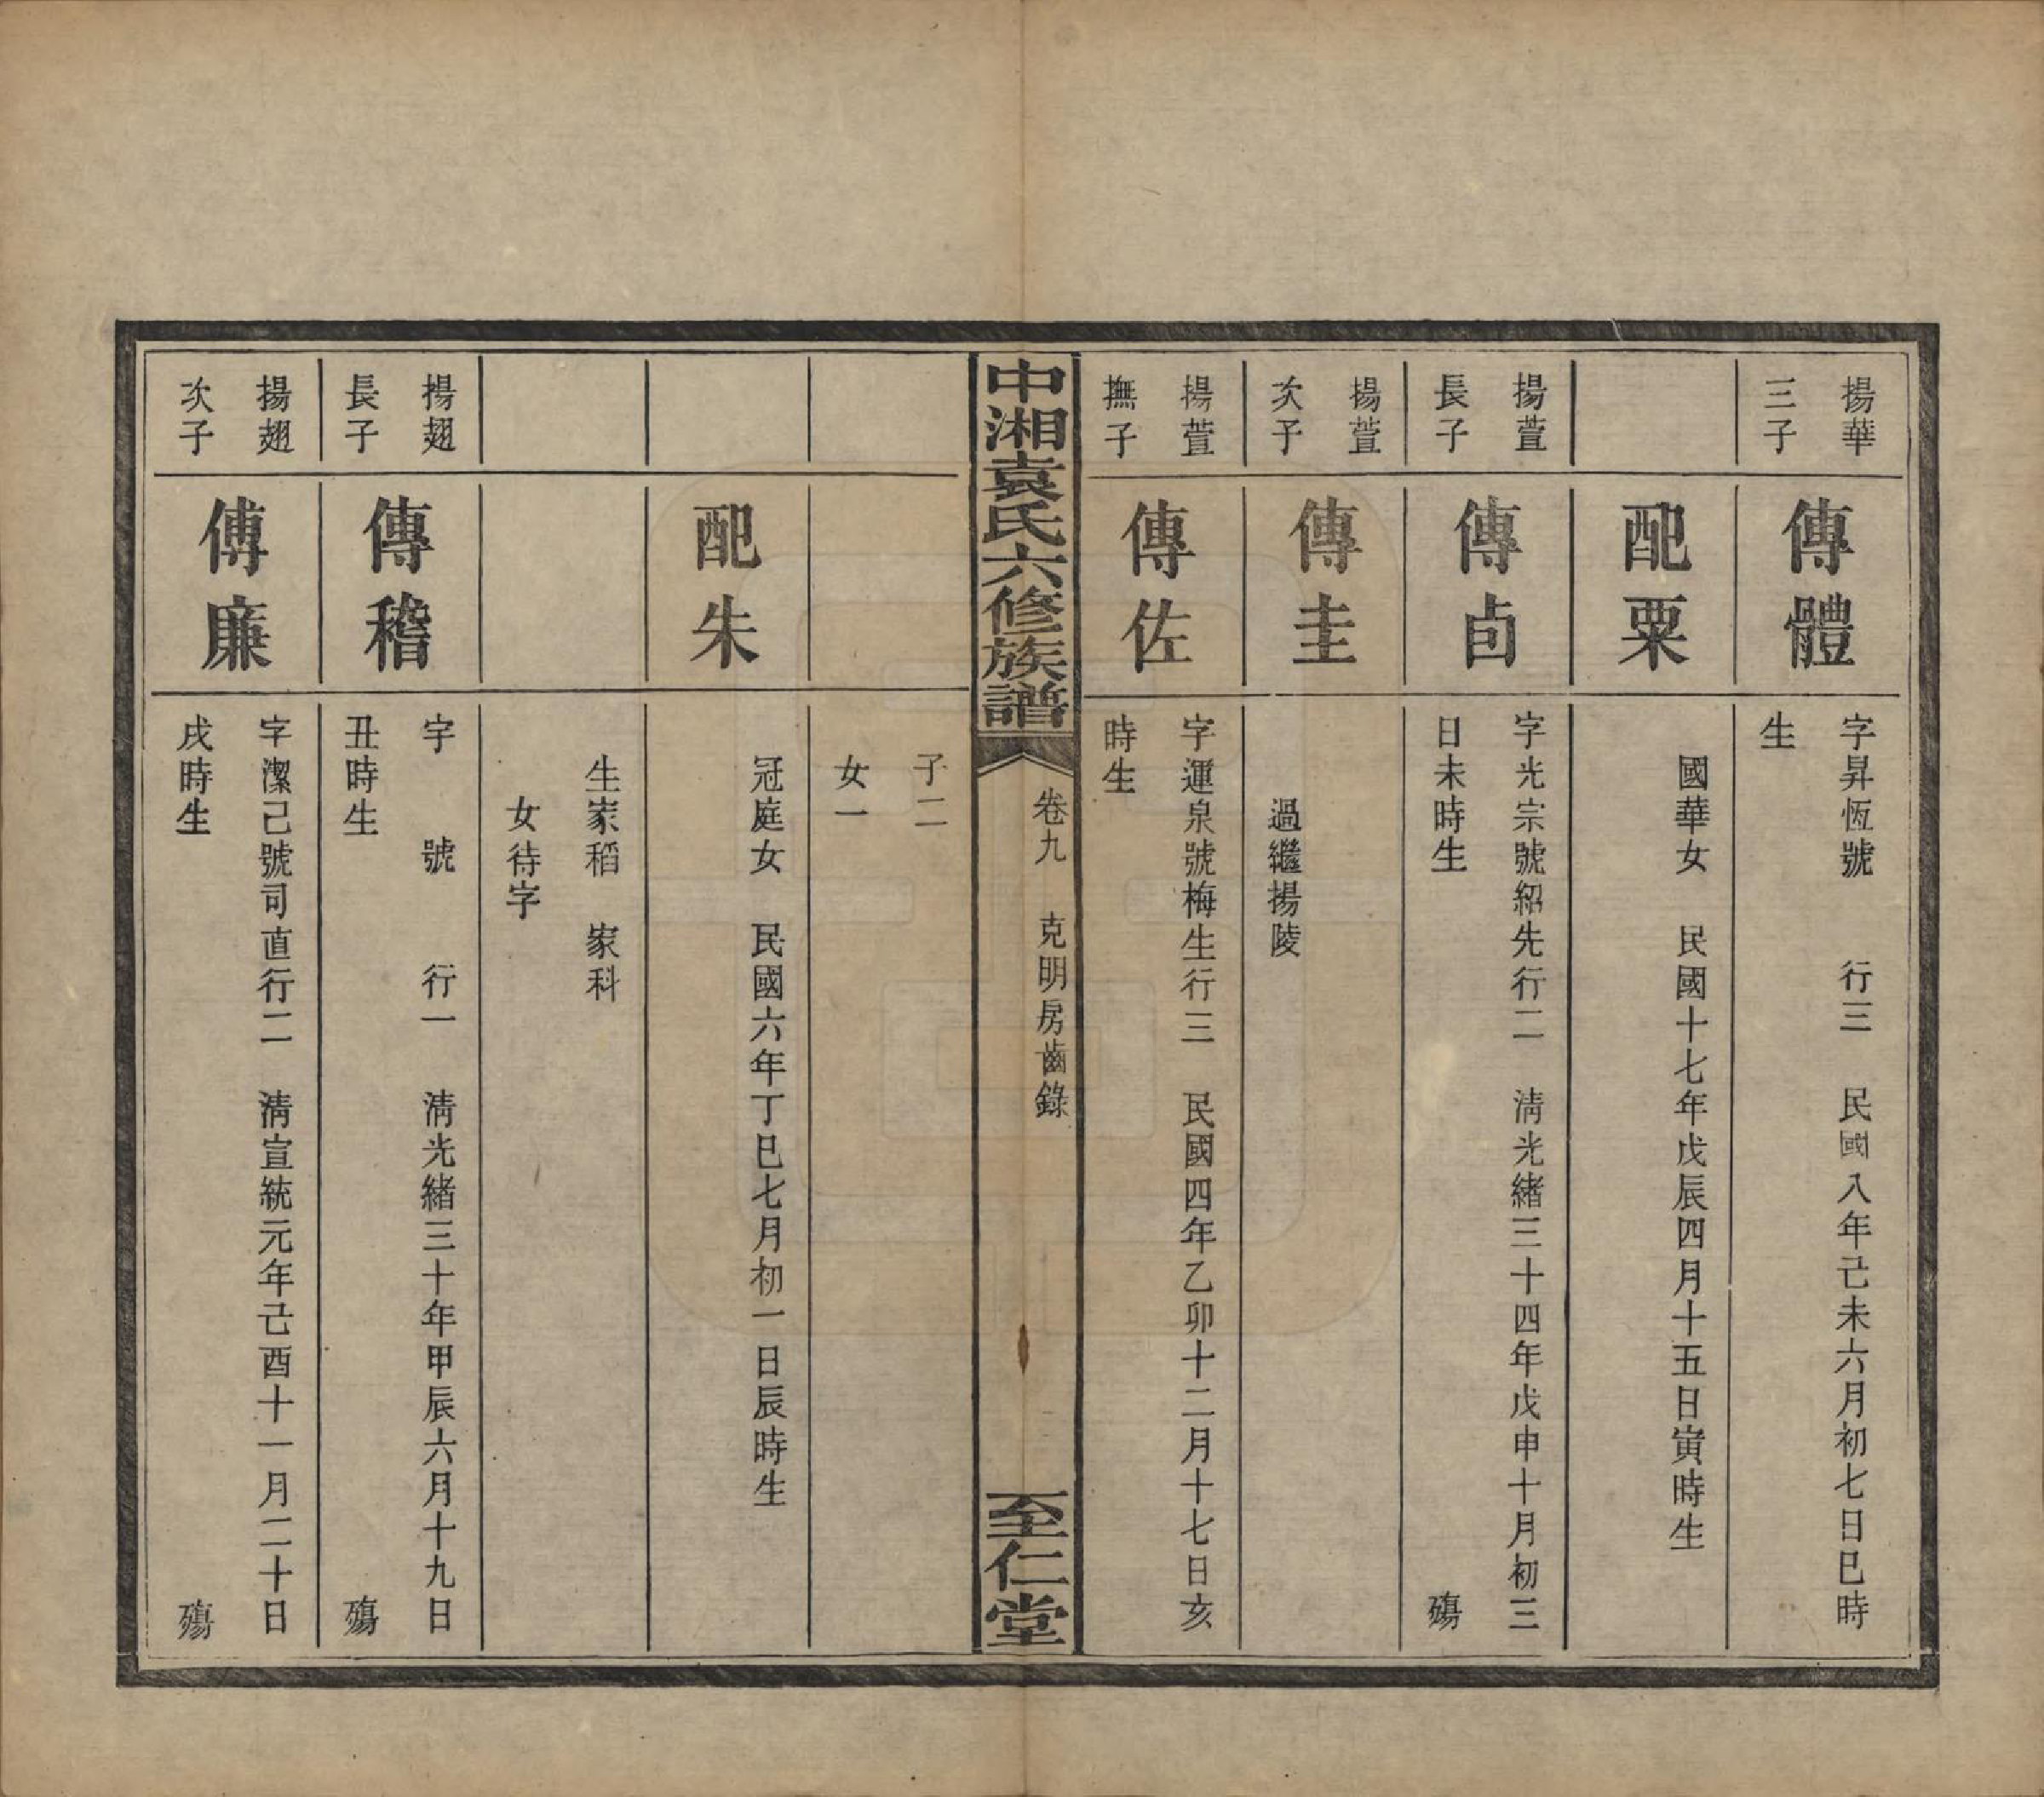 揚華
三子
傳體
字昇恆號　行三　民國八年己未六月初七日巳時
生
配粟
國華女　民國十七年戊辰四月十五日寅時生
揚萱
長子
傳卣
字光宗號紹先行二　清光緒三十四年戊申十月初三
日未時生　殤
揚萱
次子
傳圭
過繼揚陵
揚萱
撫子
傳佐
字運泉號梅生行三　民國四年乙卯十二月十七日亥
時生
中湘袁氏六修族譜
卷九　克明房齒錄
至仁堂
子二
女一
配朱
冠庭女　民國六年丁巳七月初一日辰時生
生家稻　家科
女待字
揚翅
長子
傳稽
字　號　行一　清光緒三十年甲辰六月十九日
丑時生　殤
揚翅
次子
傳廉
字潔己號司直行二　清宣統元年己酉十一月二十日
戌時生　殤